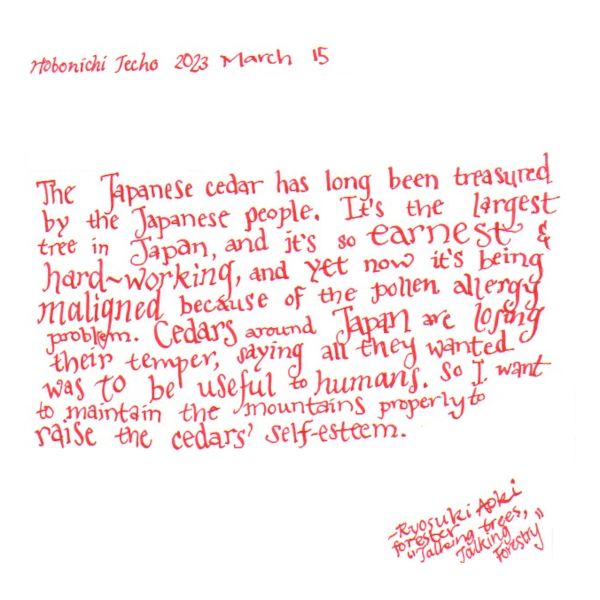 Hobonichi Techo 2023 March 15
The Japanese cedar has long been treasured
by the Japanese people. It's the largest
tree in Japan, and it's so earnest &
hard~working, and yet now it's being
maligned because of the pollen allergy
problem. Cedars around Japan are losing
their temper, saying all they wanted
was to be useful to humans. So I want
to maintain the mountains properly to
raise the cedars' self-esteem.
~Ryosuki Aoki
forester
"Talking trees,
Talking
Forestry"